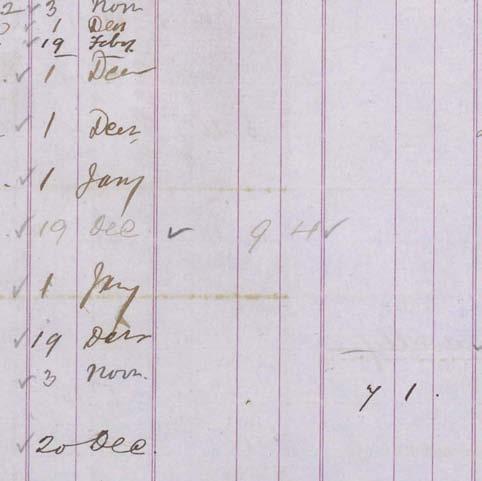 2 ✓ 3 Novr
✓ 1 Decr
✓ 19 Feby
✓ 1 Decr
✓ 1 Decr
✓ 1 Jany
✓ 19 Dec ✓ 9 4 ✓
✓ 1 Jany
✓ 19 Decr
✓ 3 Novr.
7 1 .
✓ 20 Dec.